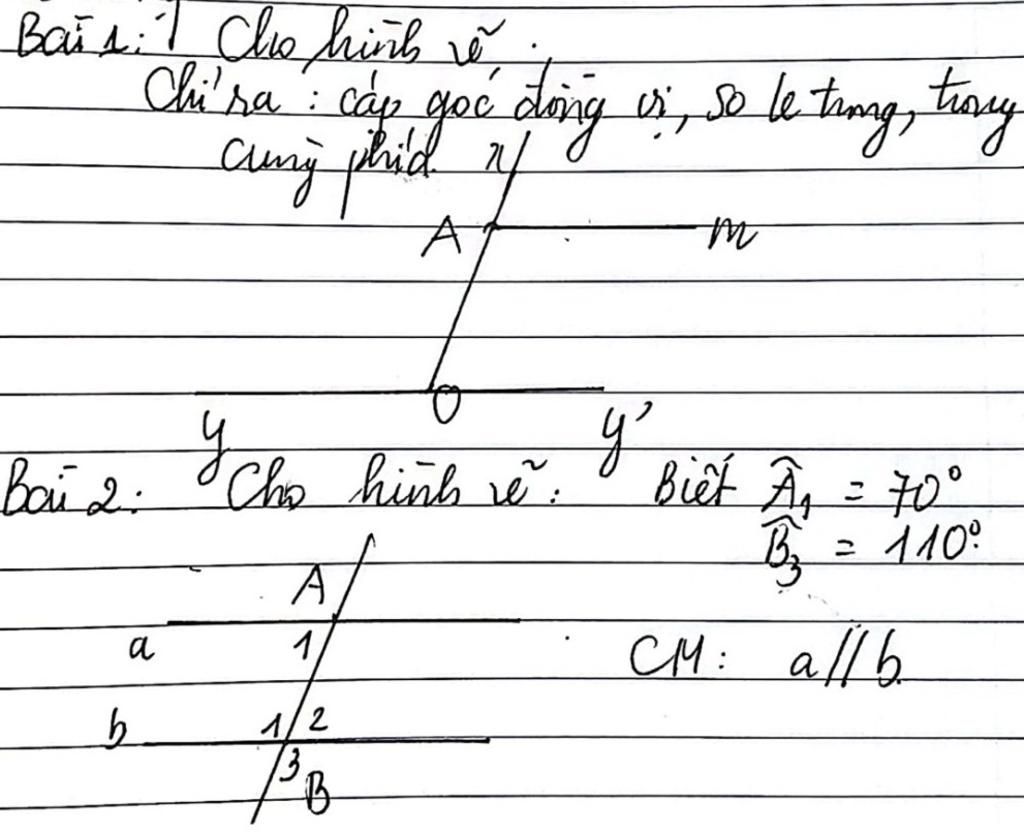 Bài 1: Cho hình vẽ.
Chỉ ra: cặp góc đồng vị, so le trong, trong
cùng phía.
x
A m
O
y y'
Bài 2: Cho hình vẽ: Biết Â₁ = 70°
B̂₃ = 110°.
A
a 1
CM: a//b.
b 1 2
3
B